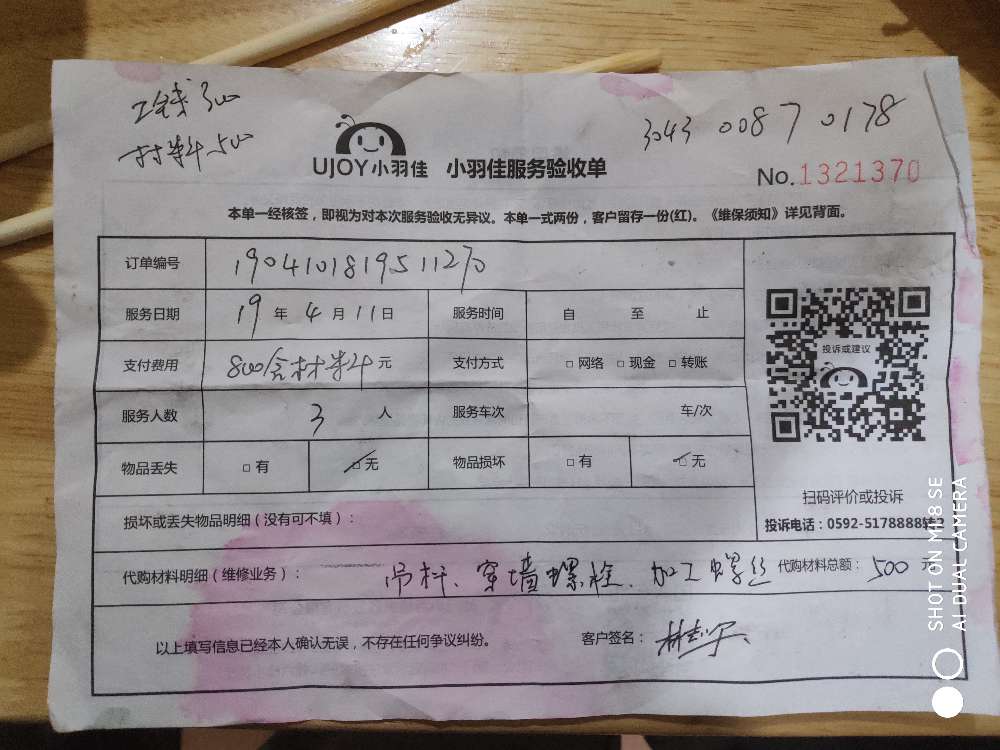 工钱 300
材料 500
3043 0087 0178
UJOY小羽佳 小羽佳服务验收单
No.1321370
本单一经核签，即视为对本次服务验收无异议。本单一式两份，客户留存一份(红)。《维保须知》详见背面。
订单编号 1904101819511270
服务日期 19 年 4 月 11 日 服务时间 自 至 止
支付费用 800含材料 元 支付方式 □ 网络 □ 现金 □ 转账
投诉或建议
服务人数 3 人 服务车次 车/次
物品丢失 □ 有 □ 无 物品损坏 □ 有 □ 无
扫码评价或投诉
损坏或丢失物品明细（没有可不填）：
投诉电话：0592-5178888转2
代购材料明细（维修业务）： 吊杆、穿墙螺栓、加工螺丝 代购材料总额： 500 元
以上填写信息已经本人确认无误，不存在任何争议纠纷。 客户签名：
SHOT ON MI 8 SE
AI DUAL CAMERA